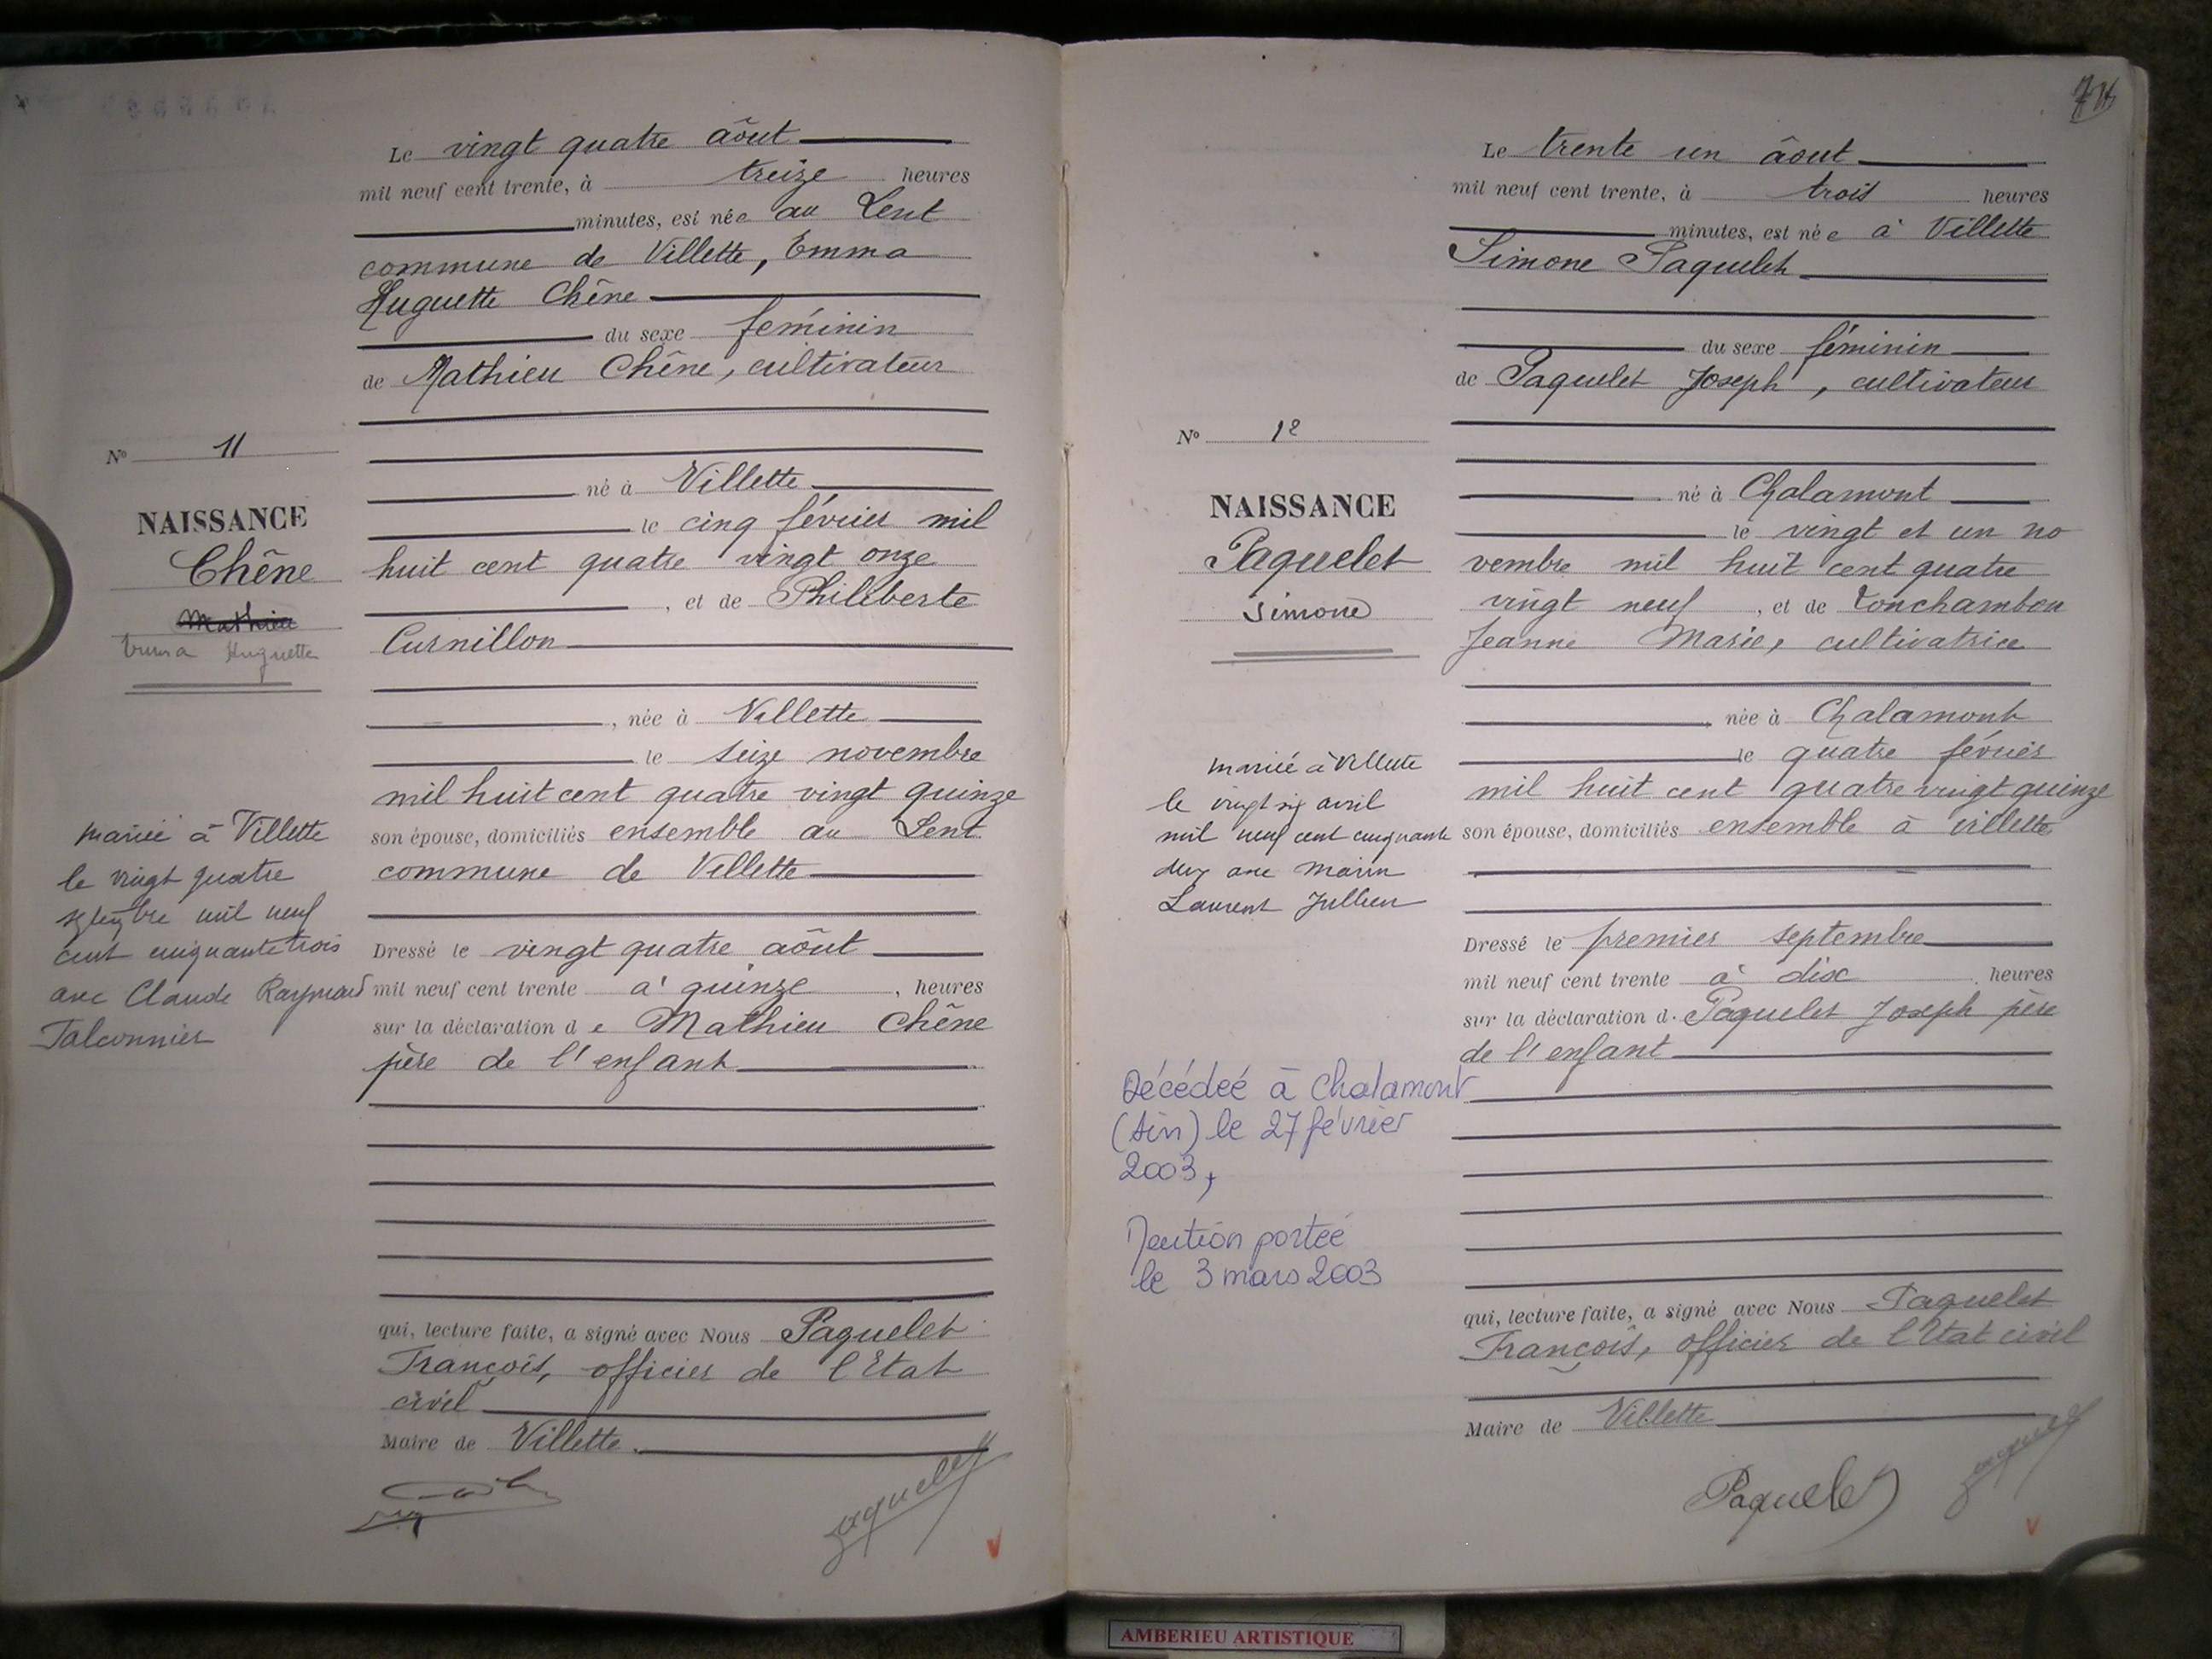 Le vingt quatre aôut
mil neuf cent trente, à treize heures
minutes, est née au Lent
commune de Villette, Emma
Huguette Chêne
du sexe feminin
de Mathieu Chêne, cultivateur
N° 11
né à Villette
le cinq février mil
huit cent quatre vingt onze
, et de Philiberte
Curnillon
, née à Villette
le seize novembre
mil huit cent quatre vingt quinze
son épouse, domiciliés ensemble au Lent
commune de Villette
Dressé le vingt quatre aôut
mil neuf cent trente à quinze , heures
sur la déclaration de Mathieu Chêne
père de l'enfant
qui, lecture faite, a signé avec Nous Paquelet
François, officier de l'Etat
civil
Maire de Villette.
Paquelet
V
NAISSANCE
Chêne
Mathieu
Emma Huguette
mariée à Villette
le vingt quatre
septembre mil neuf
cent cinquante trois
avec Claude Raymond
Falconnier
Le trente un âout
mil neuf cent trente, à trois heures
minutes, est née à Villette
Simone Paquelet
du sexe féminin
de Paquelet Joseph, cultivateur
N° 12
né à Chalamont
le vingt et un no
vembre mil huit cent quatre
vingt neuf , et de Tonchambon
Jeanne Marie, cultivatrice
, née à Chalamont
le quatre février
mil huit cent quatre vingt quinze
son épouse, domiciliés ensemble à villette
Dressé le premier septembre
mil neuf cent trente à dix heures
sur la déclaration d. Paquelet Joseph père
de l'enfant
qui, lecture faite, a signé avec Nous Paquelet
François, officier de l'Etat civil
Maire de Villette
Paquelet
Paquelet
V
NAISSANCE
Paquelet
Simone
mariée à Villette
le vingt six avril
mil neuf cent cinquante
deux avec Marin
Laurent Jullien
Décédeé à Chalamont
(Ain) le 27 février
2003,
Mention porteé
le 3 mars 2003
AMBERIEU ARTISTIQUE